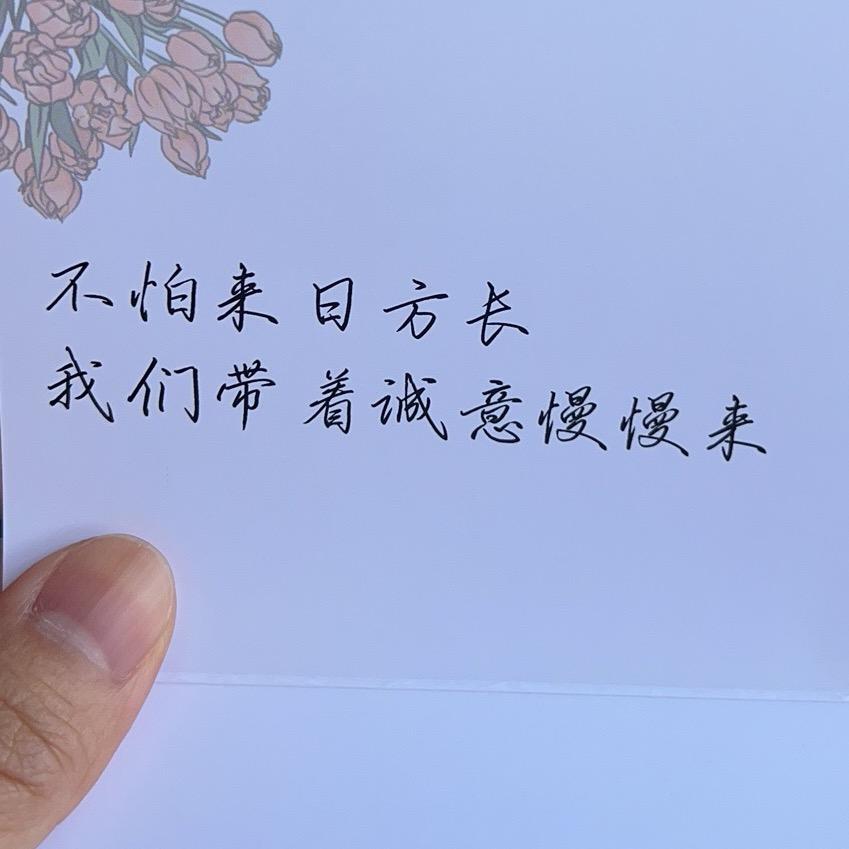 不怕来日方长
我们带着诚意慢慢来